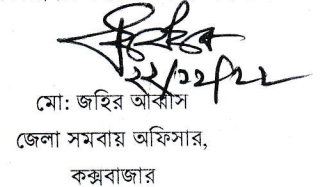 ২২/১২/২২
মো: জহির আব্বাস
জেলা সমবায় অফিসার,
কক্সবাজার